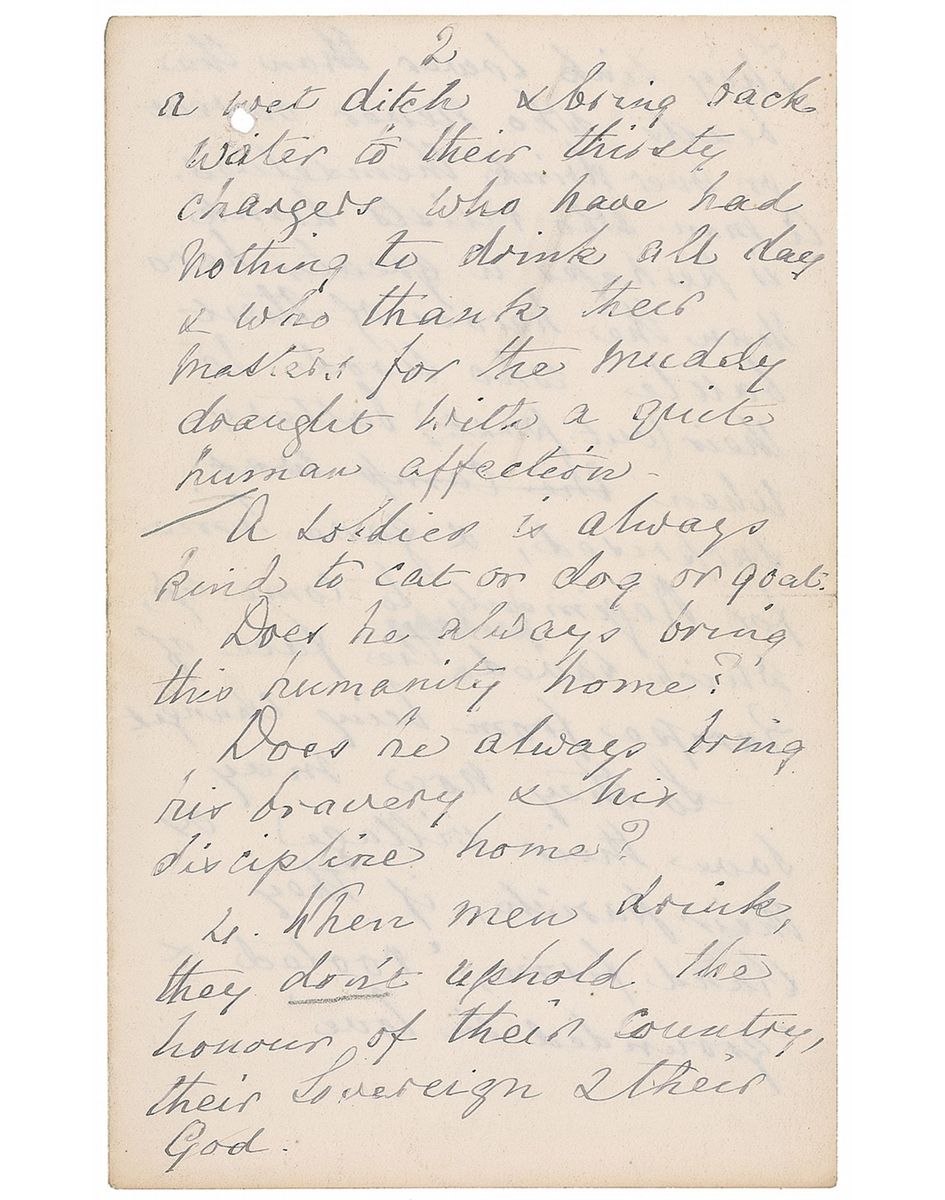 2
a wet ditch & bring back
water to their thirsty
chargers who have had
nothing to drink all day
& who thank their
masters for the muddy
draught with a quite
human affection -
A soldier is always
kind to cat or dog or goat.
Does he always bring
this humanity home?
Does he always bring
his bravery & his
discipline home?
4. When men drink,
they don't uphold the
honour of their country,
their Sovereign & their
God.